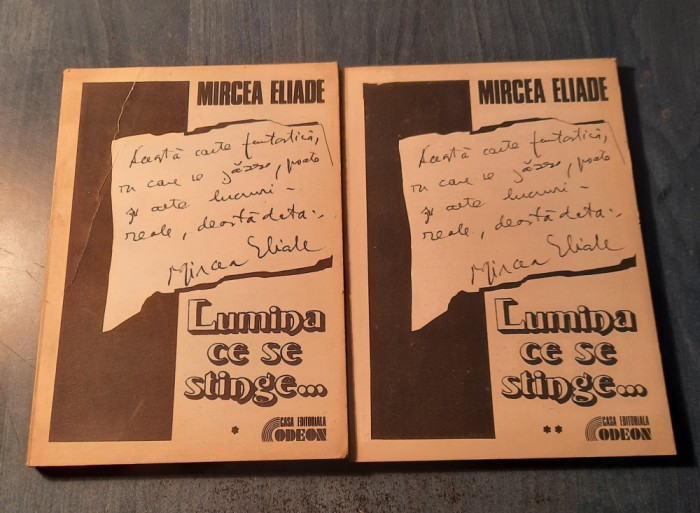 MIRCEA ELIADE
Această carte fantastică,
în care se găsesc, poate
și alte lucruri –
reale, deastădata..
Mircea Eliade
Lumina
ce se
stinge...
*
CASA EDITORIALA
ODEON
MIRCEA ELIADE
Această carte fantastică,
în care se găsesc, poate
și alte lucruri –
reale, deastădata..
Mircea Eliade
Lumina
ce se
stinge...
**
CASA EDITORIALA
ODEON